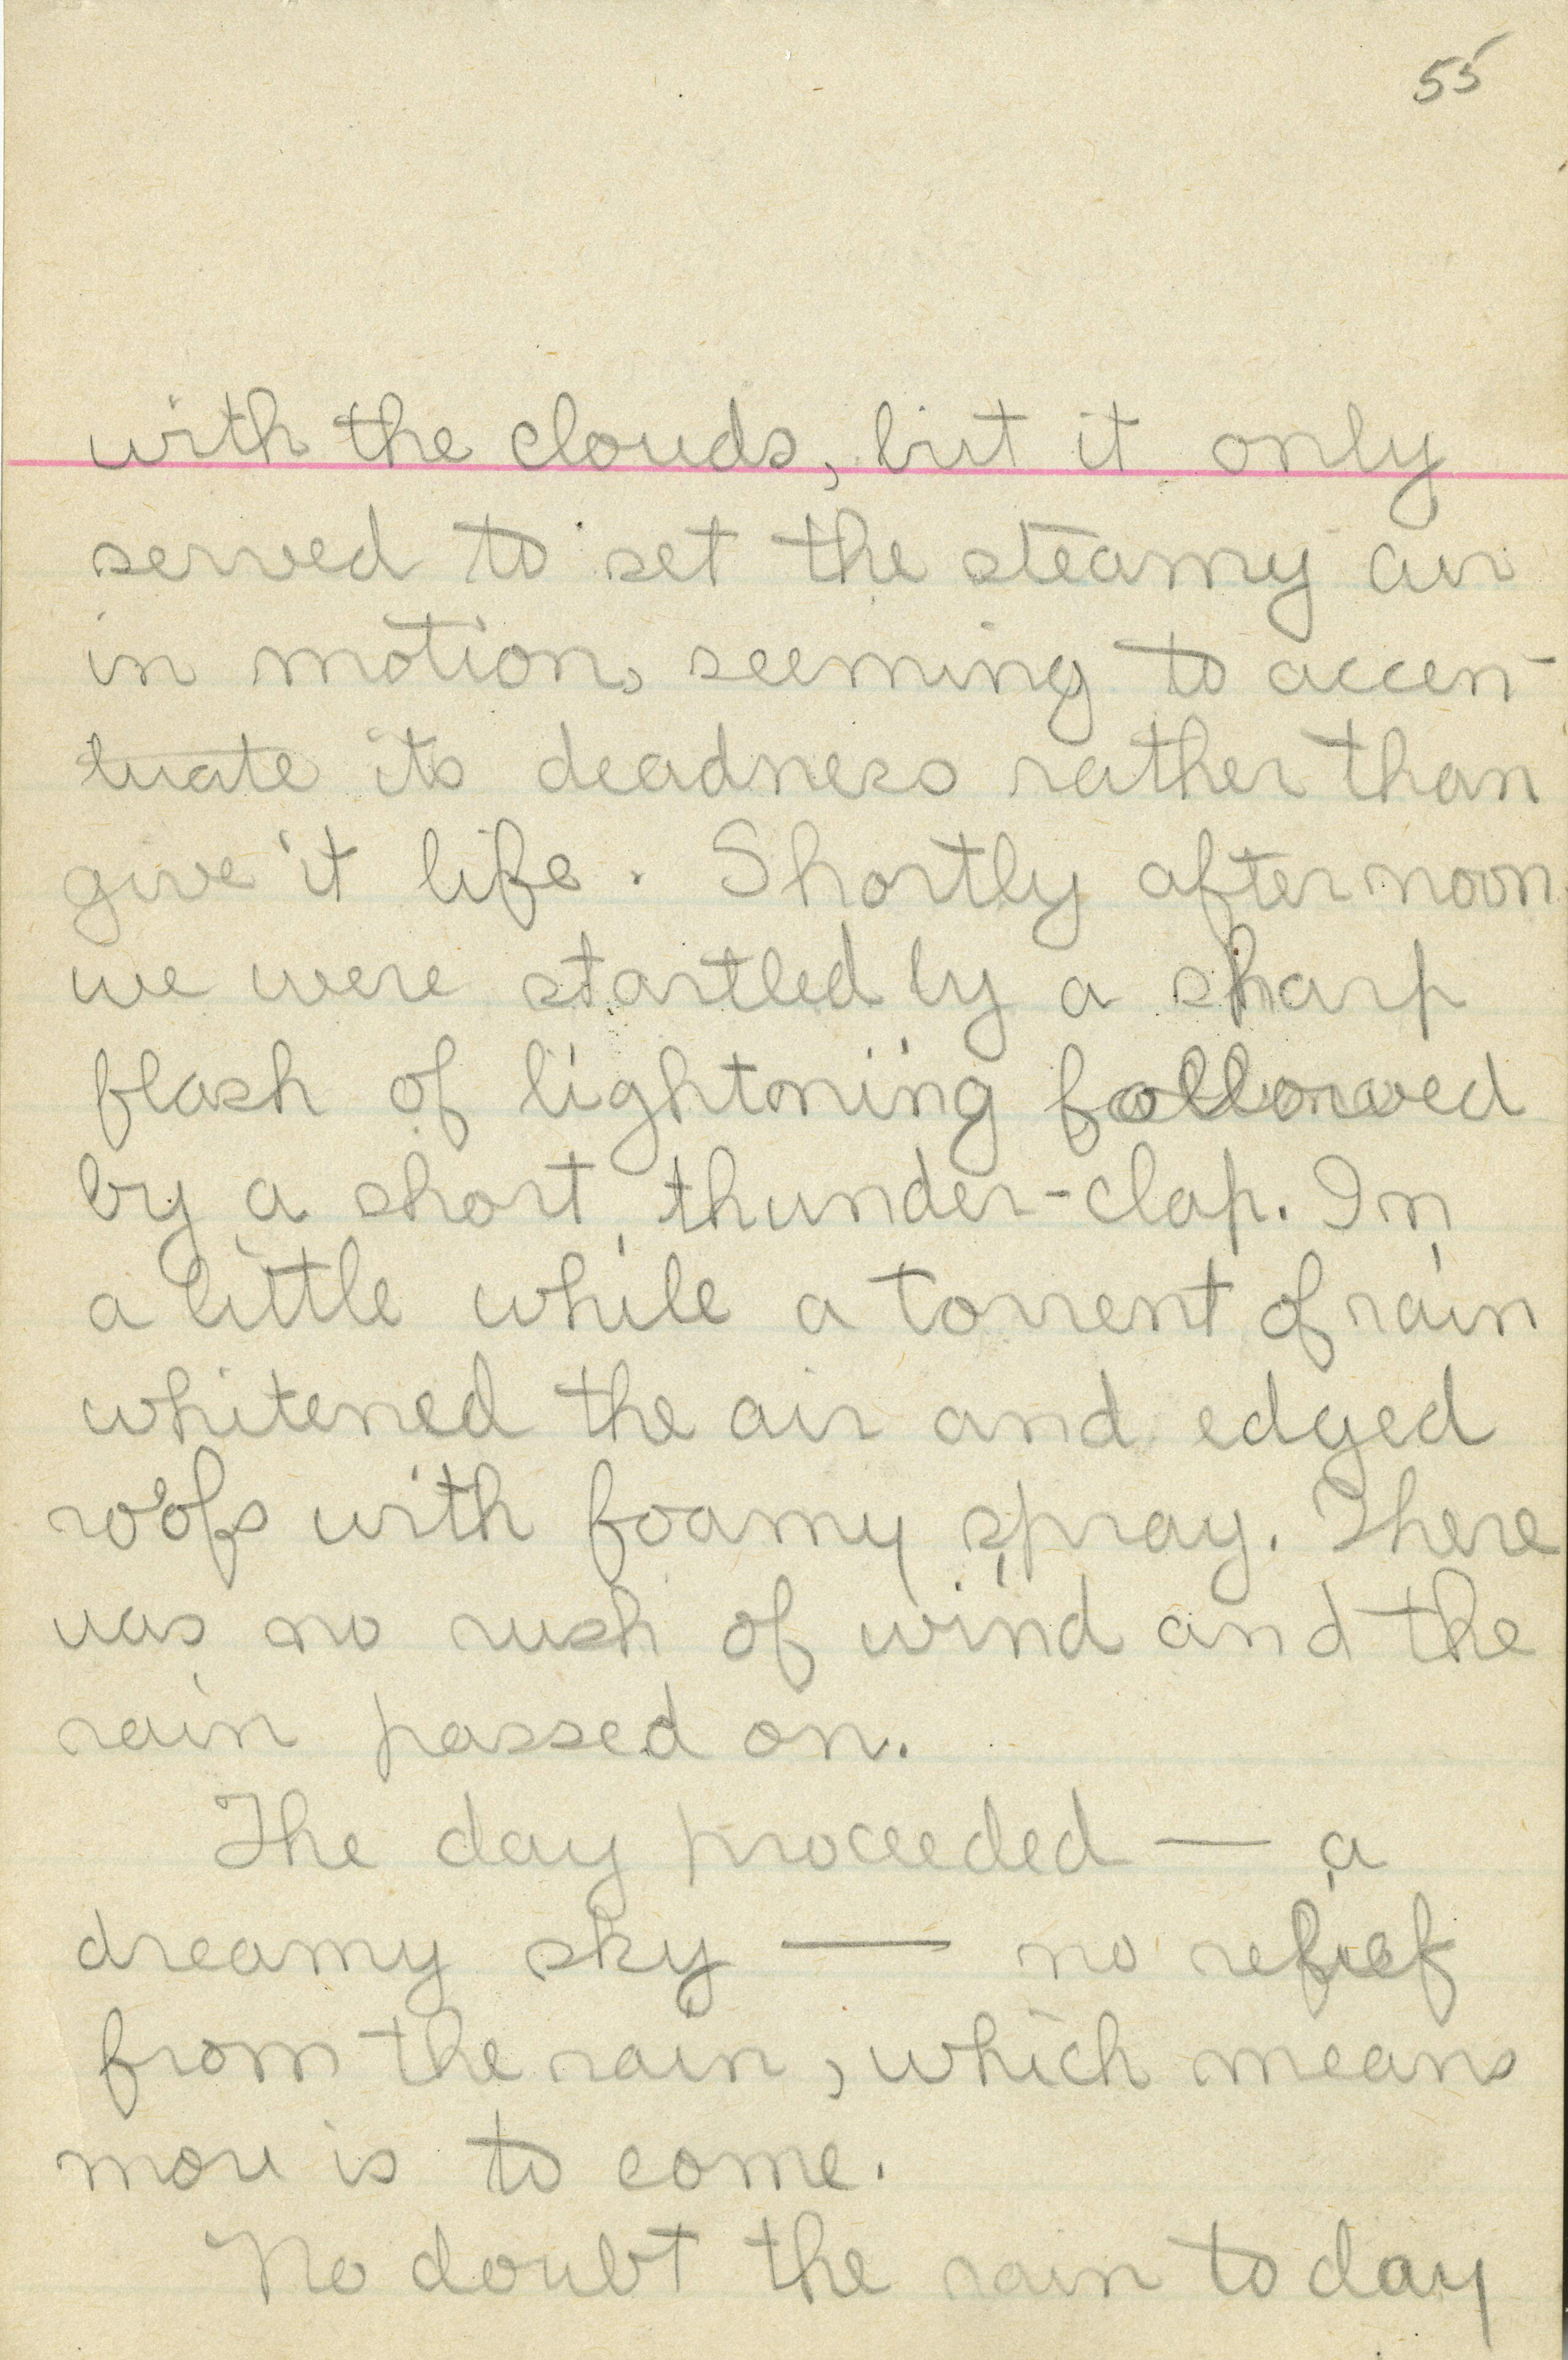 55
with the clouds, but it only
served to set the steamy air
in motion, seeming to accen-
tuate its deadness rather than
give it life. Shortly after noon
we were startled by a sharp
flash of lightning followed
by a short thunder-clap. In
a little while a torrent of rain
whitened the air and edged
roofs with foamy spray. There
was no rush of wind and the
rain passed on.
The day proceeded — a
dreamy sky — no relief
from the rain, which means
more is to come.
No doubt the rain today